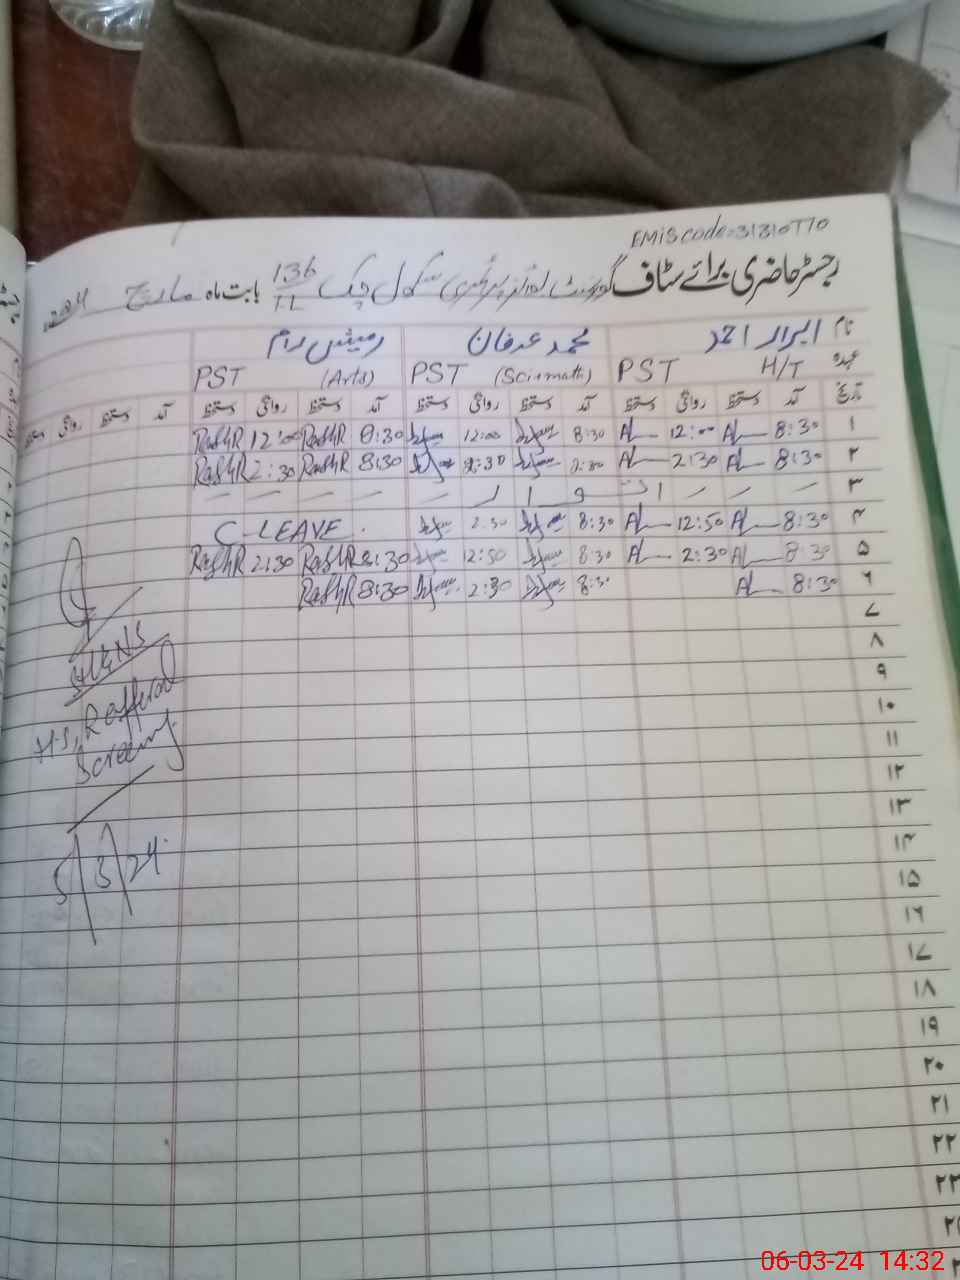 EMIS code=31310770
رجسٹر حاضری برائے سٹاف گورنمنٹ بوائز پرائمری سکول چک 136/1L بابت ماہ مارچ
نام ابرار احمد محمد عرفان رمیش رام
عہدہ H/T PST (Sci+math) PST (Arts) PST
تاریخ آمد دستخط روانگی دستخط آمد دستخط روانگی دستخط آمد دستخط روانگی دستخط آمد دستخط روانگی دستخط
۱ 8:30 AL 12:00 AL 8:30 12:00 8:30 RashR 12:00 RashR
۲ 8:30 AL 2:30 AL 8:30 2:30 8:30 RashR 2:30 RashR
۳ – – – ا ت و ا ر – – – –
۴ 8:30 AL 12:50 AL 8:30 2:30 C-LEAVE
۵ 8:30 AL 2:30 AL 8:30 12:50 8:30 RashR 2:30 RashR
۶ 8:30 AL 8:30 2:30 8:30 RashR
۷
۸
۹
۱۰
۱۱
۱۲
۱۳
۱۴
۱۵
۱۶
۱۷
۱۸
۱۹
۲۰
۲۱
۲۲
۲۳
SH&NS
HS, Rafferal
Screening
5/3/24
06-03-24 14:32